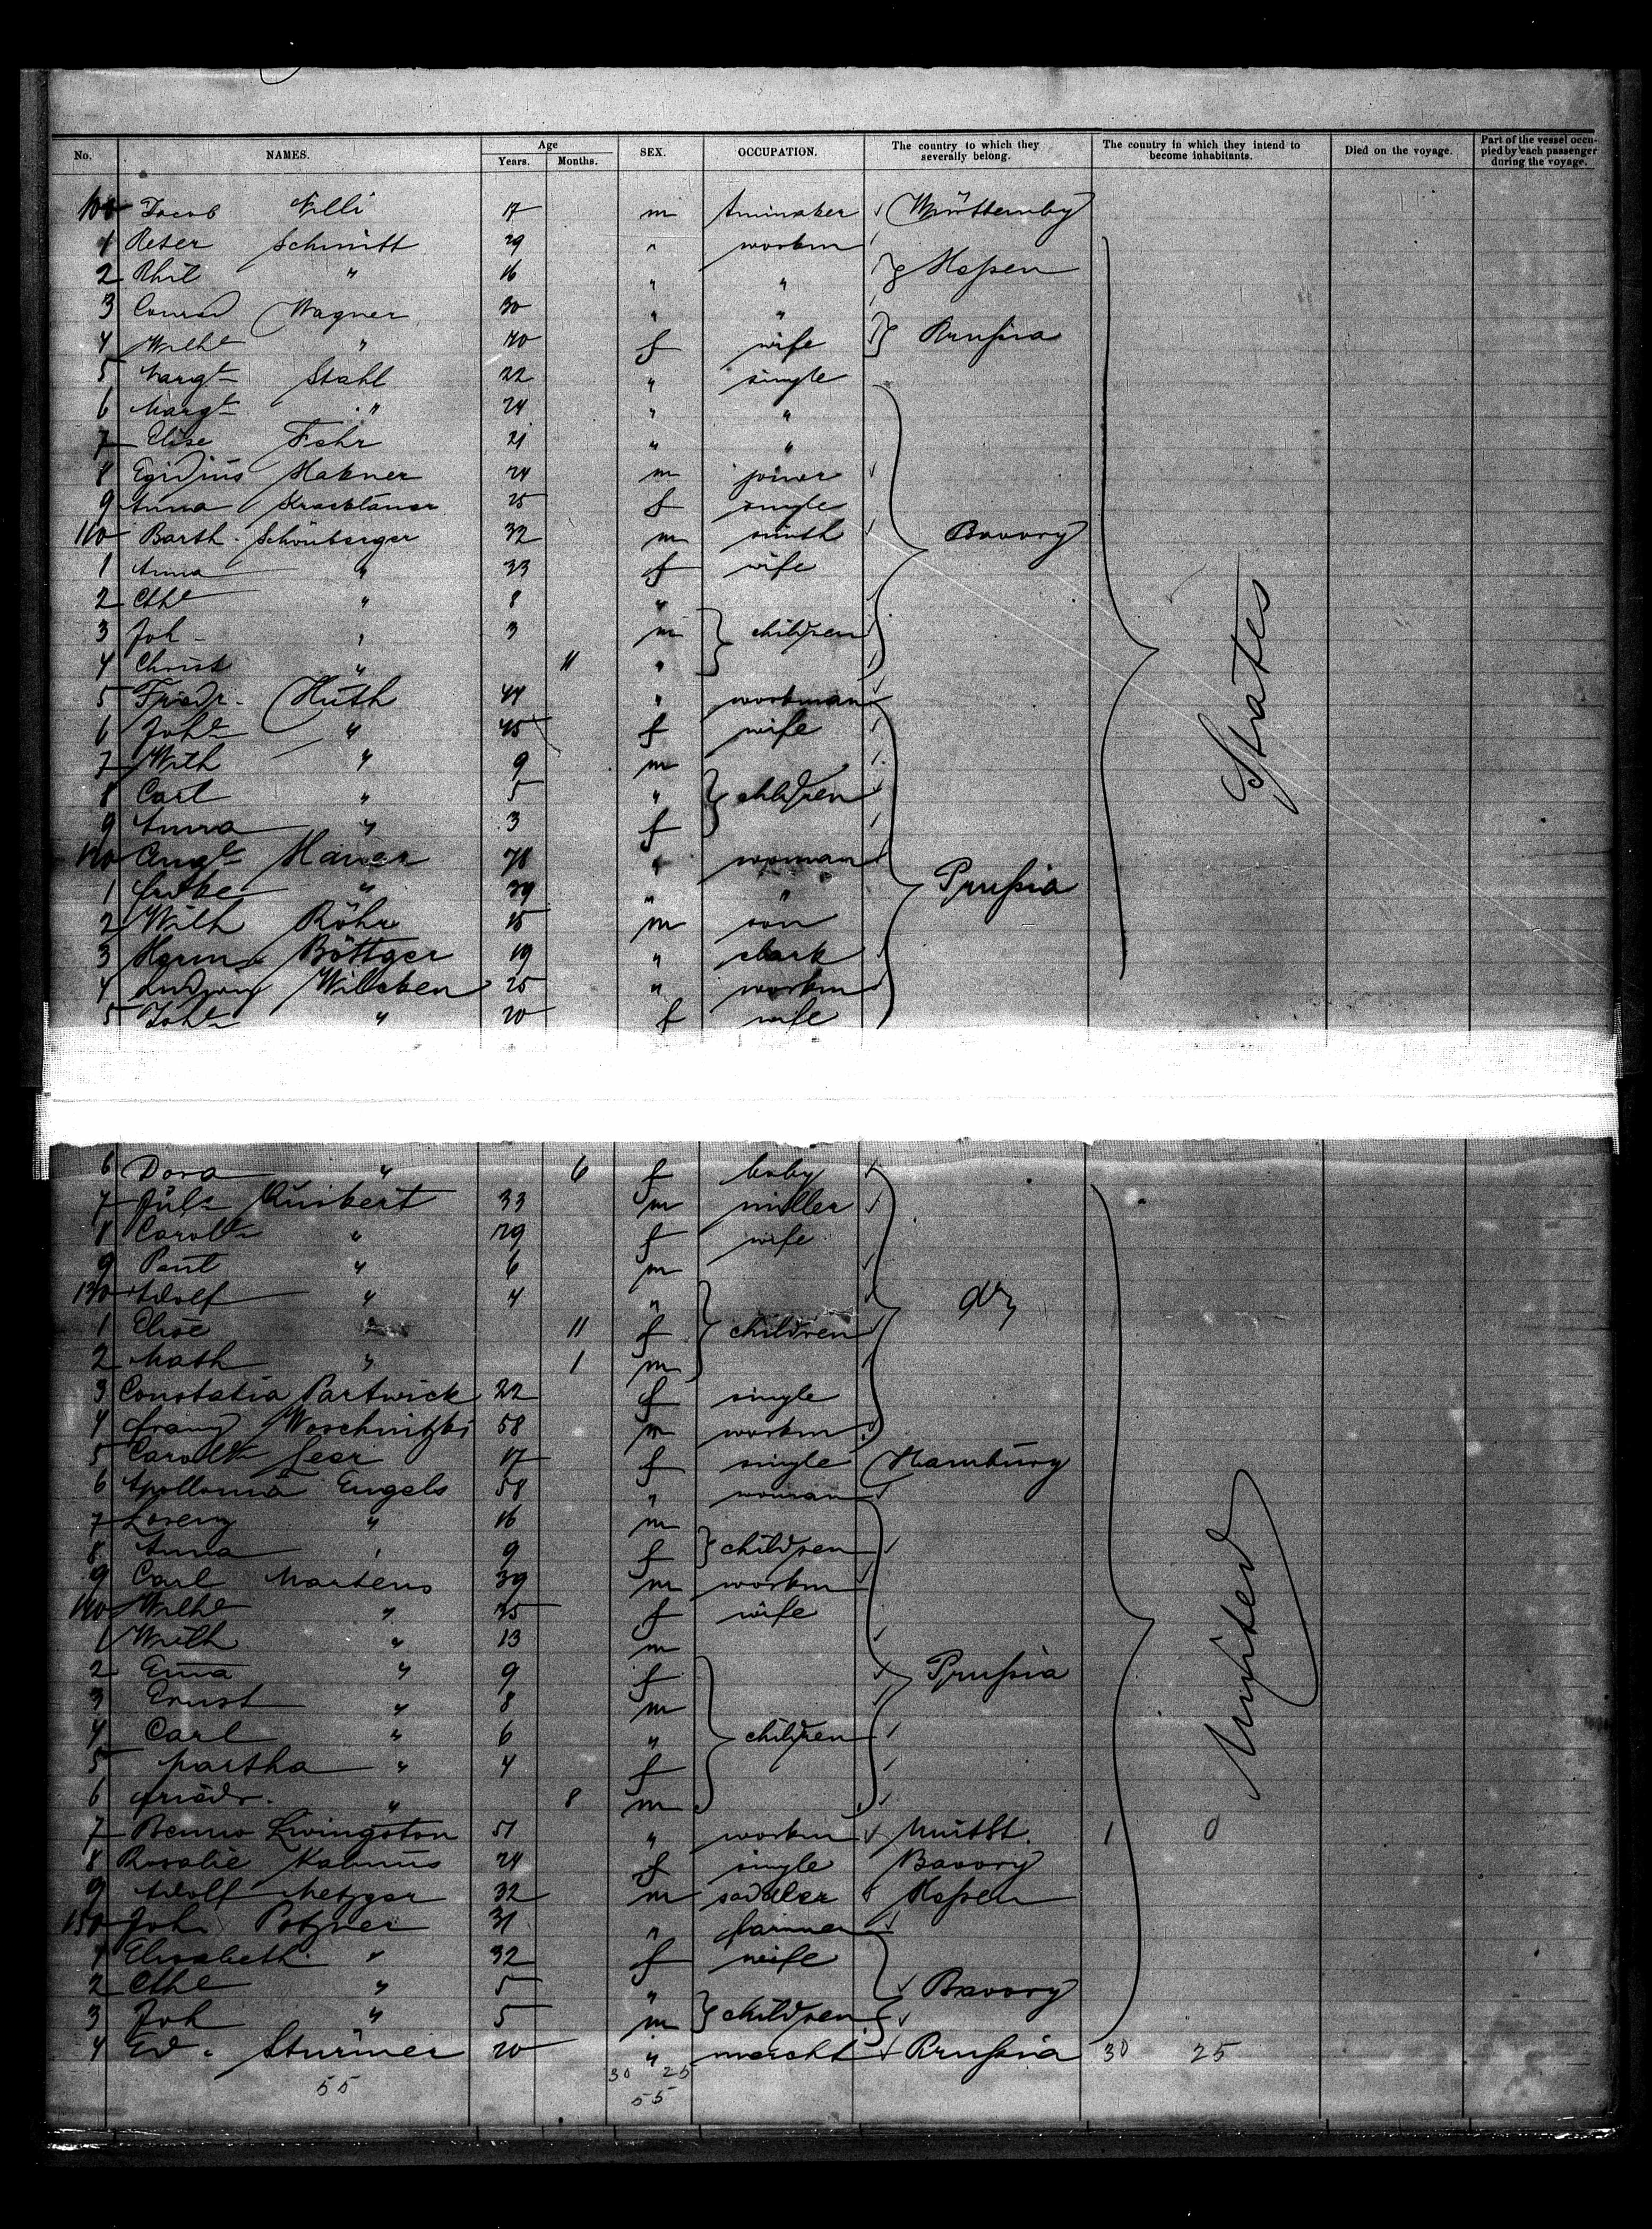 No. NAMES. Age Years. Months. SEX. OCCUPATION. The country to which they severally belong. The country in which they intend to become inhabitants. Died on the voyage. Part of the vessel occupied by each passenger during the voyage.
100 Jacob 17 m
1 Peter Schmitt 29 " workm
2 Phil " 16 " " Hessen
3 Conrad Wagner 30 " "
4 Wilhe " 20 f wife Prussia
5 Margt Stahl 22 " single
6 Margt " 24 " "
7 Elise Fehr 21 " "
8 Egidius Hakner 24 m joiner
9 Anna 25 f single
110 Barth. Schönberger 32 m smith Bavory
1 Anna " 33 f wife
2 Cthe " 8 "
3 Joh " 3 m children
4 Christ " 11 "
5 Friedr. Huth 44 " workman
6 Johe " 45 f wife
7 Wilh " 9 m
8 Carl " 5 " children
9 Anna " 3 f
120 Augte 78 " woman
1 " 39 " " Prussia
2 Wilh Röhr 15 m son
3 Herm Böttger 19 " clark
4 Ludwig Willeben 25 " workm
5 Johe " 20 f wife
States
6 Dora " 6 f baby
7 Jul. 33 m miller
8 Carolte " 29 f wife
9 Paul " 6 m
130 Adolf " 4 " do
1 Elise " 11 f children
2 Math " 1 m
3 Constatia Partwick 22 f single
4 Franz Woschnitzki 58 m workm
5 Carolte Leer 17 f single Hamburg
6 Apollonia Engels 58 " woman
7 Lorenz " 16 m
8 Anna " 9 f children
9 Carl Martens 39 m workm
140 Wilhe " 35 f wife
1 Wilh " 13 m
2 Emma " 9 f Prussia
3 Ernst " 8 m
4 Carl " 6 " children
5 Martha " 4 f
6 Friedr. " 8 m
United
7 Benno Livingston 51 " workm Unit St. 1 0
8 Rosalie Kalmus 24 f single Bavory
9 Adolf Metzger 32 m saddler Hessen
150 Joh Potzner 31 " farmer
1 Elisabeth " 32 f wife
2 Cthe " 5 " Bavory
3 Joh " 5 m children
4 Ed. Stürmer 20 " mercht Prussia 30 25
55 30 25
55